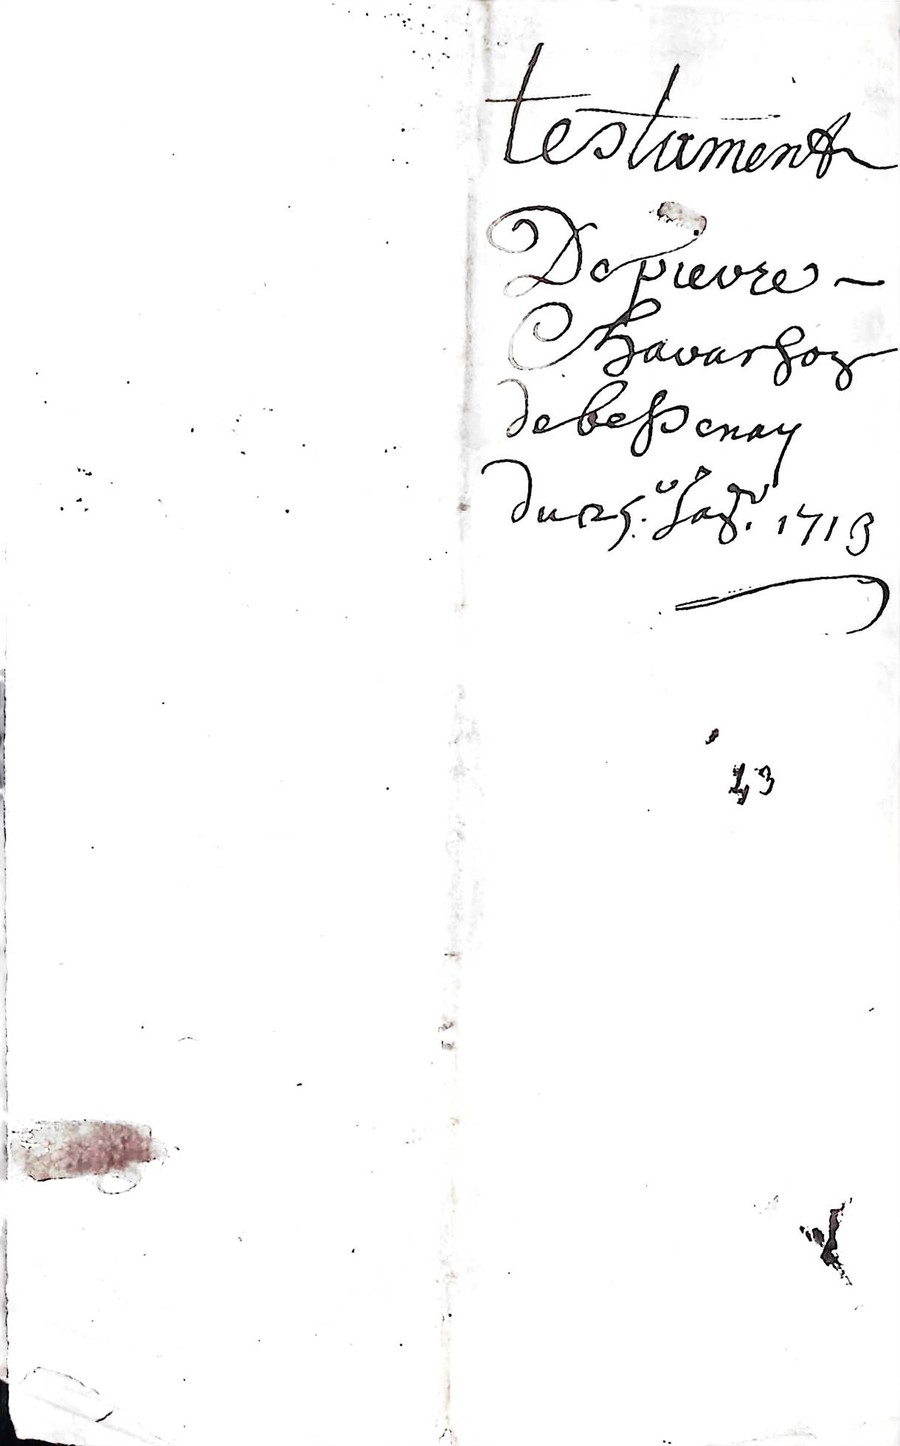 testament
De pierre
Chavassoz
de bessenay
du 25. 1713
43